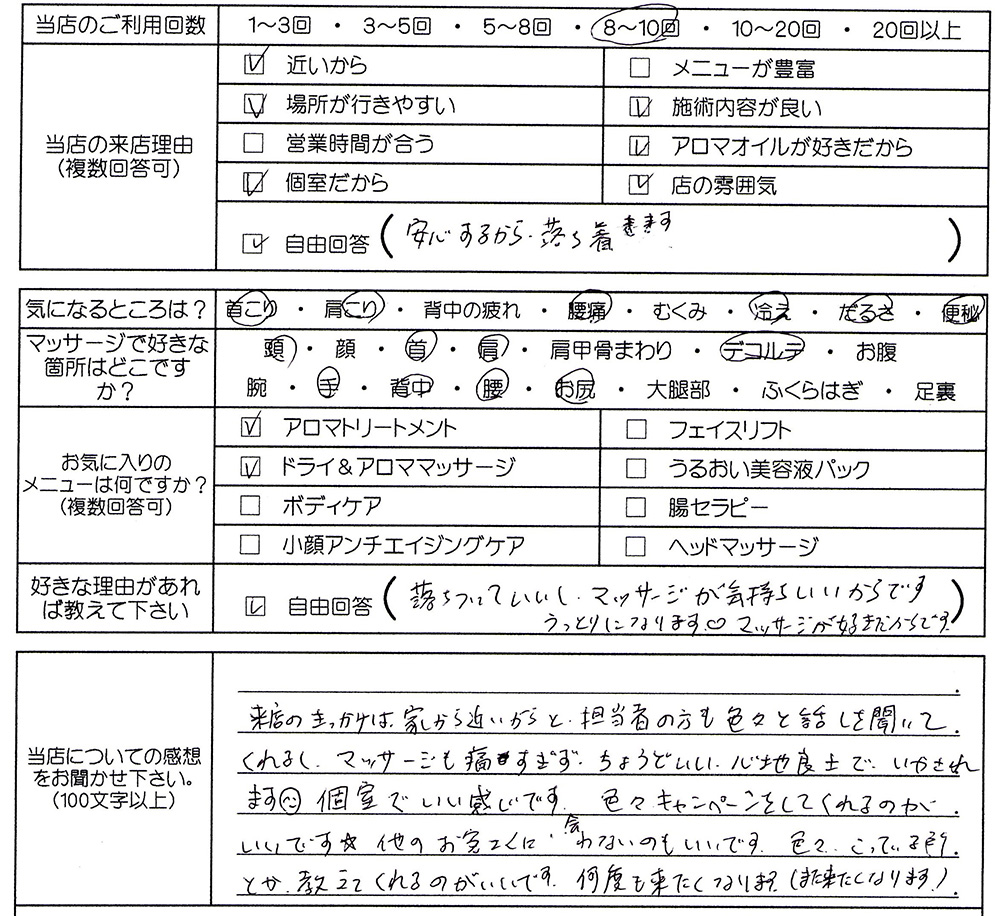 当店のご利用回数 1〜3回 ・ 3〜5回 ・ 5〜8回 ・ 8〜10回 ・ 10〜20回 ・ 20回以上
当店の来店理由
(複数回答可)
近いから メニューが豊富
場所が行きやすい 施術内容が良い
営業時間が合う アロマオイルが好きだから
個室だから 店の雰囲気
自由回答 (安心するから、落ち着きます)
気になるところは? 首こり ・ 肩こり ・ 背中の疲れ ・ 腰痛 ・ むくみ ・ 冷え ・ だるさ ・ 便秘
マッサージで好きな
箇所はどこです
か?
頭 ・ 顔 ・ 首 ・ 肩 ・ 肩甲骨まわり ・ デコルテ ・ お腹
腕 ・ 手 ・ 背中 ・ 腰 ・ お尻 ・ 大腿部 ・ ふくらはぎ ・ 足裏
お気に入りの
メニューは何ですか?
(複数回答可)
アロマトリートメント フェイスリフト
ドライ&アロママッサージ うるおい美容液パック
ボディケア 腸セラピー
小顔アンチエイジングケア ヘッドマッサージ
好きな理由があれ
ば教えて下さい
自由回答 (落ちついていいし、マッサージが気持ちいいからです
うっとりになります♡ マッサージが好きだからです)
当店についての感想
をお聞かせ下さい。
(100文字以上)
来店のきっかけは、家から近いからと、担当者の方も色々と話しを聞いて
くれるし、マッサージも痛すぎず、ちょうどいい、心地良さで、いやされ
ます☺ 個室でいい感じです、色々キャンペーンをしてくれるのが
いいです☆ 他のお客さんに会わないのもいいです、色々、こっている所
とか、教えてくれるのがいいです、何度も来たくなります(また来たくなります!)